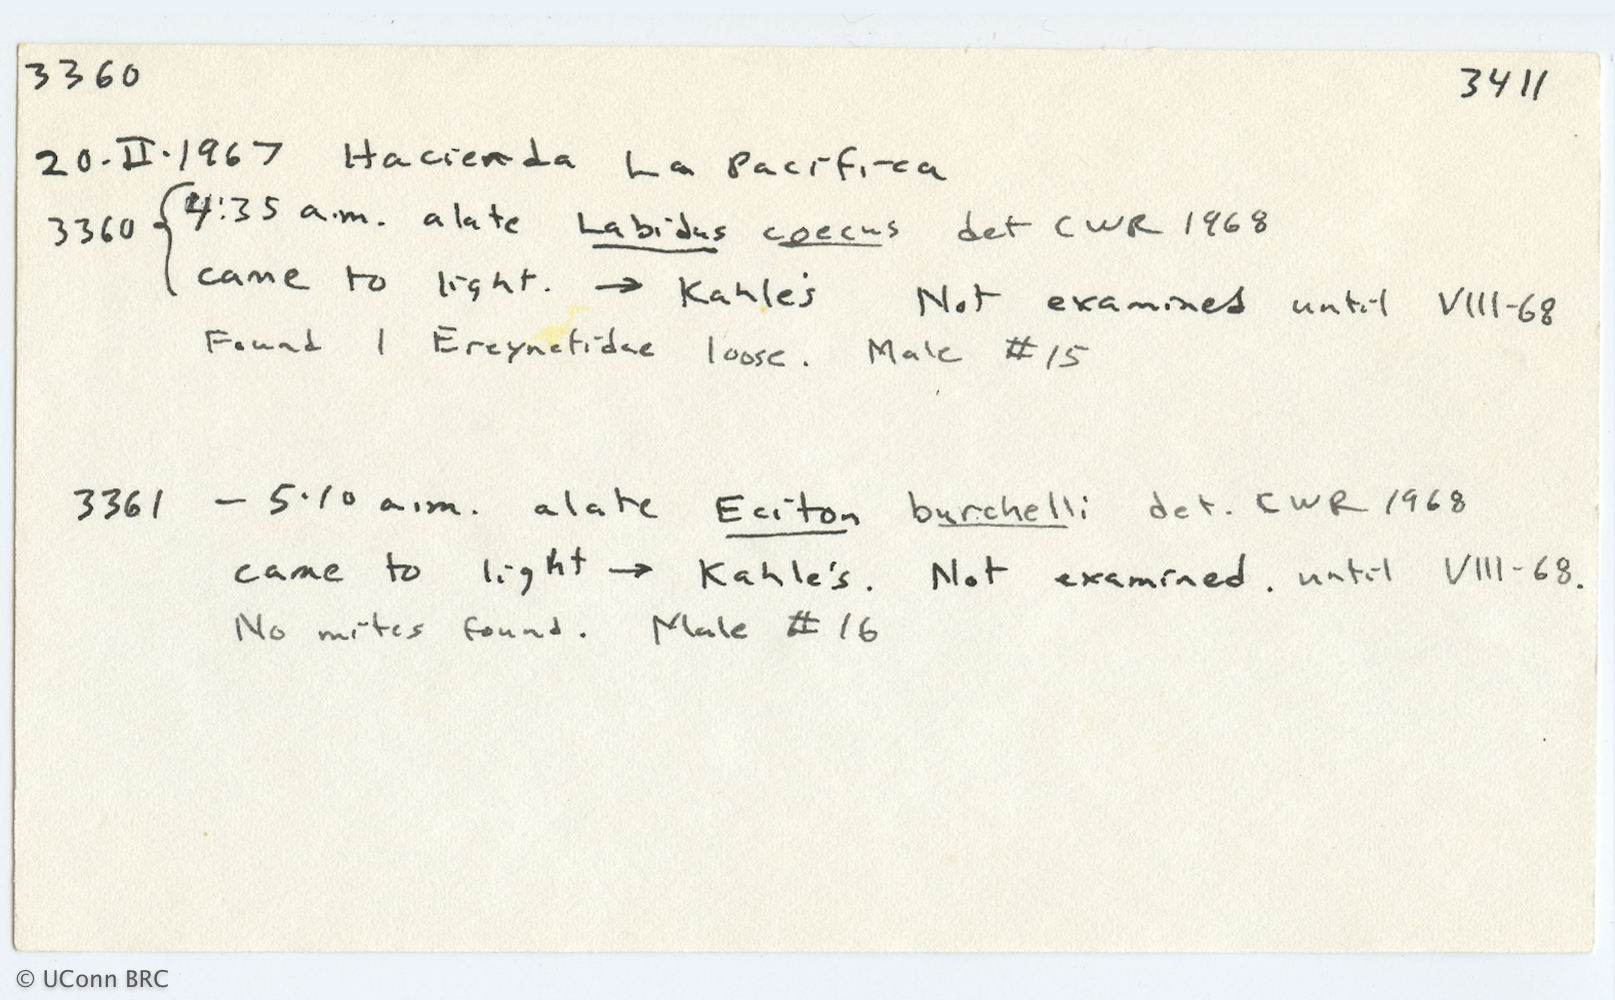 3360 3411
20·II·1967 Hacienda La Pacifica
3360 { 4:35 a.m. alate Labidus coecus det CWR 1968
came to light. → Kahle's Not examined until VIII-68
Found 1 Ereynetidae loose. Male #15
3361 – 5·10 a.m. alate Eciton burchelli det. CWR 1968
came to light → Kahle's. Not examined. until VIII-68.
No mites found. Male #16
© UConn BRC